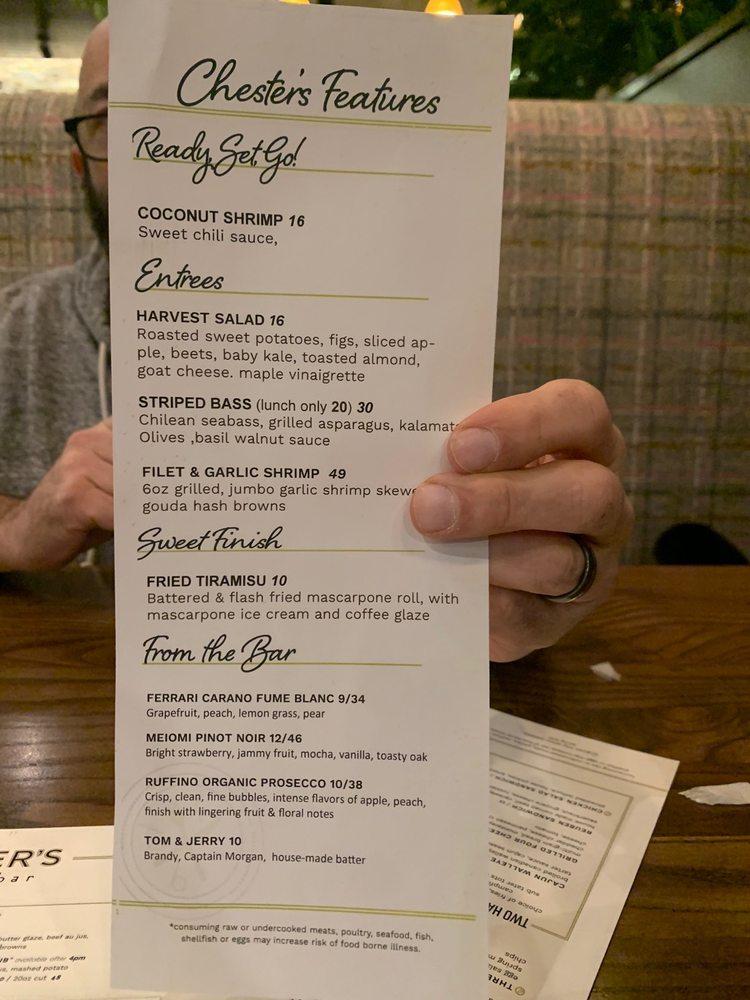 Chester's Features
Ready, Set, Go!
COCONUT SHRIMP 16
Sweet chili sauce,
Entrees
HARVEST SALAD 16
Roasted sweet potatoes, figs, sliced ap-
ple, beets, baby kale, toasted almond,
goat cheese. maple vinaigrette
STRIPED BASS (lunch only 20) 30
Chilean seabass, grilled asparagus, kalamat
Olives ,basil walnut sauce
FILET & GARLIC SHRIMP 49
6oz grilled, jumbo garlic shrimp skewe
gouda hash browns
Sweet Finish
FRIED TIRAMISU 10
Battered & flash fried mascarpone roll, with
mascarpone ice cream and coffee glaze
From the Bar
FERRARI CARANO FUME BLANC 9/34
Grapefruit, peach, lemon grass, pear
MEIOMI PINOT NOIR 12/46
Bright strawberry, jammy fruit, mocha, vanilla, toasty oak
RUFFINO ORGANIC PROSECCO 10/38
Crisp, clean, fine bubbles, intense flavors of apple, peach,
finish with lingering fruit & floral notes
TOM & JERRY 10
Brandy, Captain Morgan, house-made batter
*consuming raw or undercooked meats, poultry, seafood, fish,
shellfish or eggs may increase risk of food borne illness.
ER'S
bar
butter glaze, beef au jus,
browns
IB" available after 4pm
us, mashed potato
/ 20oz cut 48
CHICKEN SALAD SANDWICH
REUBEN SANDWICH
GRILLED FOUR CHEE
CAJUN WALLEYE
sub tater tots
choice of fries,
TWO HA
THRE
egg sala
spring m
chips